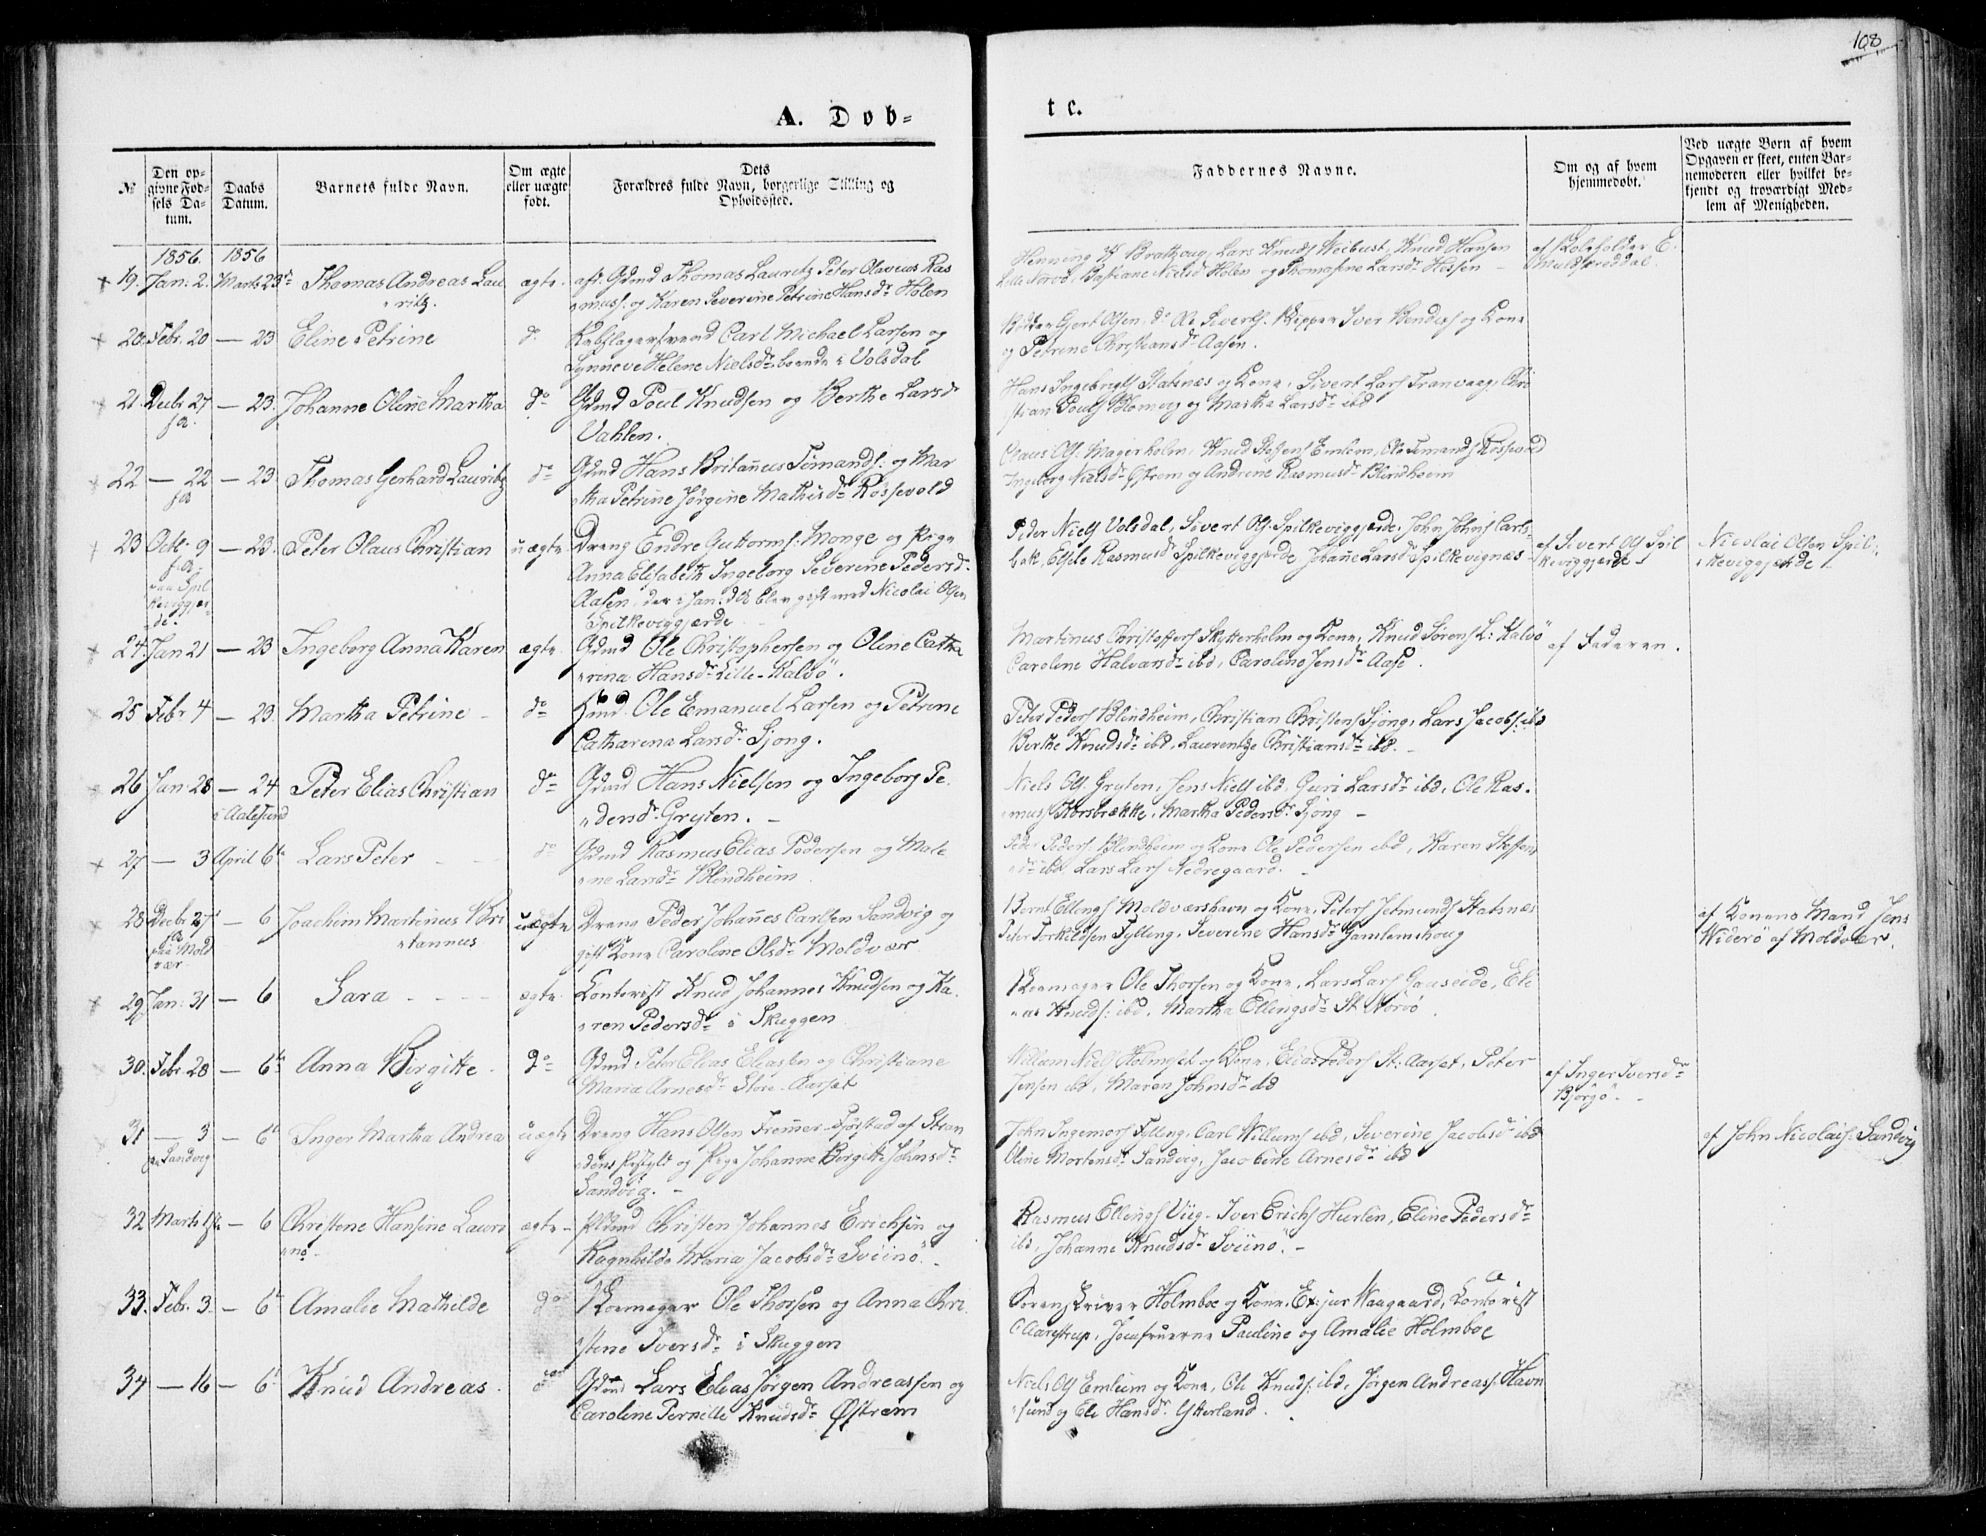 108
A. Døb-
te.
№
Den op-
givne Fød-
sels Da-
tum.
Daabs
Datum.
Barnets fulde Navn.
Om ægte
eller uægte
født.
Dets
Forældres fulde Navn, borgerlige Stilling og
Opholdssted.
Faddernes Navne.
Om og af hvem
hjemmedøbt.
Ved uægte Børn af hvem
Opgaven er skeet, enten Bar-
nemoderen eller hvilket be-
kjendt og troværdigt Med-
lem af Menigheden.
1856. 1856
19. Jan: 2. Marts 23de Thomas Andreas Lau
ritz.
ægte.
afd. Gdmd Thomas Lauritz Peter Olaveus Ras
muss. og Karen Severine Petrine Hansdr Holen
Henning Brathoug, Lars Knuds Veibust, Knud Hansen
Lille Nørvø, Bastiane Nielsd Holen og Thomasine Larsdr Hessen
af
20. Febr. 20 — 23 Eline Petrine
do
Rebslagersvend Carl Michael Larsen og
Synneve Helene Nielsdr boende i Volsdal
Gjert Olsen, do Ole Siverts. Skipper Iver Bendixs og Kone
og Petrine Christiansdr Aasen.
21. Decbr 27 — 23. Johanne Oline Martha
f.a.
do
Gdmd Poul Knudsen og Berthe Larsdr
Vahlen.
Hans Ingebrigts Slatnæs og Kone, Sivert Lars Tranvaag, Chri
stian Pouls Blomvig og Martha Larsdr ibd
22 — 22 — 23. Thomas Gerhard Lauritz
f.a.
do
Gdmd Hans Britannus Timands: og Mar
tha Petrine Jørgine Mathisdr Røssevold
Claus Ols. Magerholm, Knud Steffens Emlem, Ole Timands Røssevold
Ingeborg Nielsdr Østrem og Andrine Rasmusdr Blindheim
23 Octbr 9 — 23. Peter Olaus Christian
f.a.
paa Spil
keviggjær
de.
uægte
Dreng Endre Guttorms: Monge og Pige
Anna Elisabeth Ingeborg Severine Pedersdr
Aasen, der i Jan: d.A blev gift med Nicolai Olsen
Spilkeviggjærde
Peder Niels Volsdal, Sivert Ols. Spilkeviggjerde, John Johns Carls
bak, Rasmusdr Spilkeviggjerde Johanne Larsdr Spilkevignæs
af Sivert Ols Spil
keviggjerde
Nicolai Olsen Spil
keviggjærde
24. Jan 21 — 23 Ingeborg Anna Karen
ægte
Gdmd Ole Christophersen og Oline Catha
rina Hansdr Lille-Kalvø.
Martinus Christoffers Skytterholm og Kone, Knud Sørens L: Kalvø
Caroline Halvarsdr ibd, Caroline Jensdr Aase.
af Faderen.
25 Febr 4 — 23. Martha Petrine
do
Hmd. Ole Emanuel Larsen og Petrine
Catharina Larsdr Sjong.
Peter Peders Blindheim, Christian Christens Sjong, Lars Jacobs: ibd
Berthe Knudsdr ibd, Laurentze Christiansdr ibd.
26 Jan 28 — 24 Peter Elias Christian
i Aalesund
do
Gdmd Hans Nielsen og Ingeborg Pe
dersdr Gryten.
Niels Ols. Gryten, Jens Niels ibd. Guri Larsdr ibd, Ole Ras
mus Korsbrække, Martha Pedersdr Sjong
27 — 3 April 6te Lars Peter
do
Gdmd Rasmus Elias Pedersen og Male
ne Larsdr Blindheim
Peder Peders Blindheim og Kone Ole Pedersen ibd, Karen Steffens
dr ibd Lars Lars Nedregaard.
28 Decbr 27 — 6 Joachim Martinus Bri
tannus
f.a.
paa Mold
vær
uægte
Dreng Peder Johannes Carlsen Sandvig og
gift Kone Caroline Olsdr Moldvær
Bernt Ellings Moldværshavn og Kone, Peter Jetmunds Slatnæs
Peter Torkildsen Fylling, Severine Hansdr Gamlemshoug
af Konens Mand Jens
Viderø af Moldvær.
29 Jan: 31 — 6 Sara
ægte.
Contorist Knud Johannes Knudsen og Ka
ren Pedersdr i Skuggen
Skoemager Ole Thorsen og Kone, Lars Lars Gaaseide, Eli
as Knuds: ibd, Martha Ellingsdr St. Nørvø.
30. Febr 28 — 6te Anna Birgitte
do
Gdmd Peter Elias Eliassen og Christiane
Maria Arnesdr Store-Aarset
William Niels Holmeset og Kone, Elias Peders St: Aarset, Peter
Jensen ibd, Maren Johnsdr ibd
af Inger Iversdr
Bjørgø.
31 — 3 — 6te Inger Martha Andrea
paa Sandvig
uægte
Dreng Hans Olsen Fremmer Tjørstad af Stran
dens Prstgld og Pige Johanne Birgitte Johnsdr
Sandvig.
John Ingemors Fylling, Carl Willums ibd, Severine Jacobsdr ibd
Oline Mortensdr Sandvig, Jacobine Arnesdr ibd
af John Nicolais: Sandvig
32 Marts 1ste — 6 Christene Hansine Lauri
ne
ægte
Plmd Christen Johannes Ericksen og
Ragnhilde Maria Jacobsdr Sviinø.
Rasmus Ellings Viig, Iver Erichs Hurlen, Eline Pedersdr
ibd, Johanne Knudsdr Sviinø.
33. Febr. 3 — 6te Amalie Mathilde
do
Skoemager Ole Thorsen og Anna Chri
stene Iversdr i Skuggen
Sorenskriver Holmboe og Kone, Ex: jur Waagaard, Contorist
C Aarestrup, Jomfruerne Pauline og Amalie Holmboe
34 — 16 — 6te Knud Andreas
do
Gdmd Lars Elias Jørgen Andreassen og
Caroline Pernille Knudsdr Østrem
Niels Ols Emlem og Kone, Ole Knuds: ibd, Jørgen Andreass: Havn
sund og Eli Hansdr Ytterland.